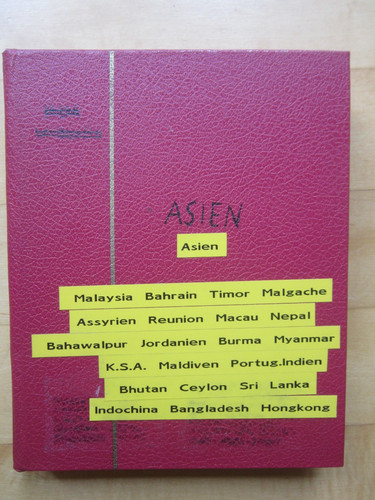 ASIEN
Asien
Malaysia Bahrain Timor Malgache
Assyrien Reunion Macau Nepal
Bahawalpur Jordanien Burma Myanmar
K.S.A. Maldiven Portug.Indien
Bhutan Ceylon Sri Lanka
Indochina Bangladesh Hongkong